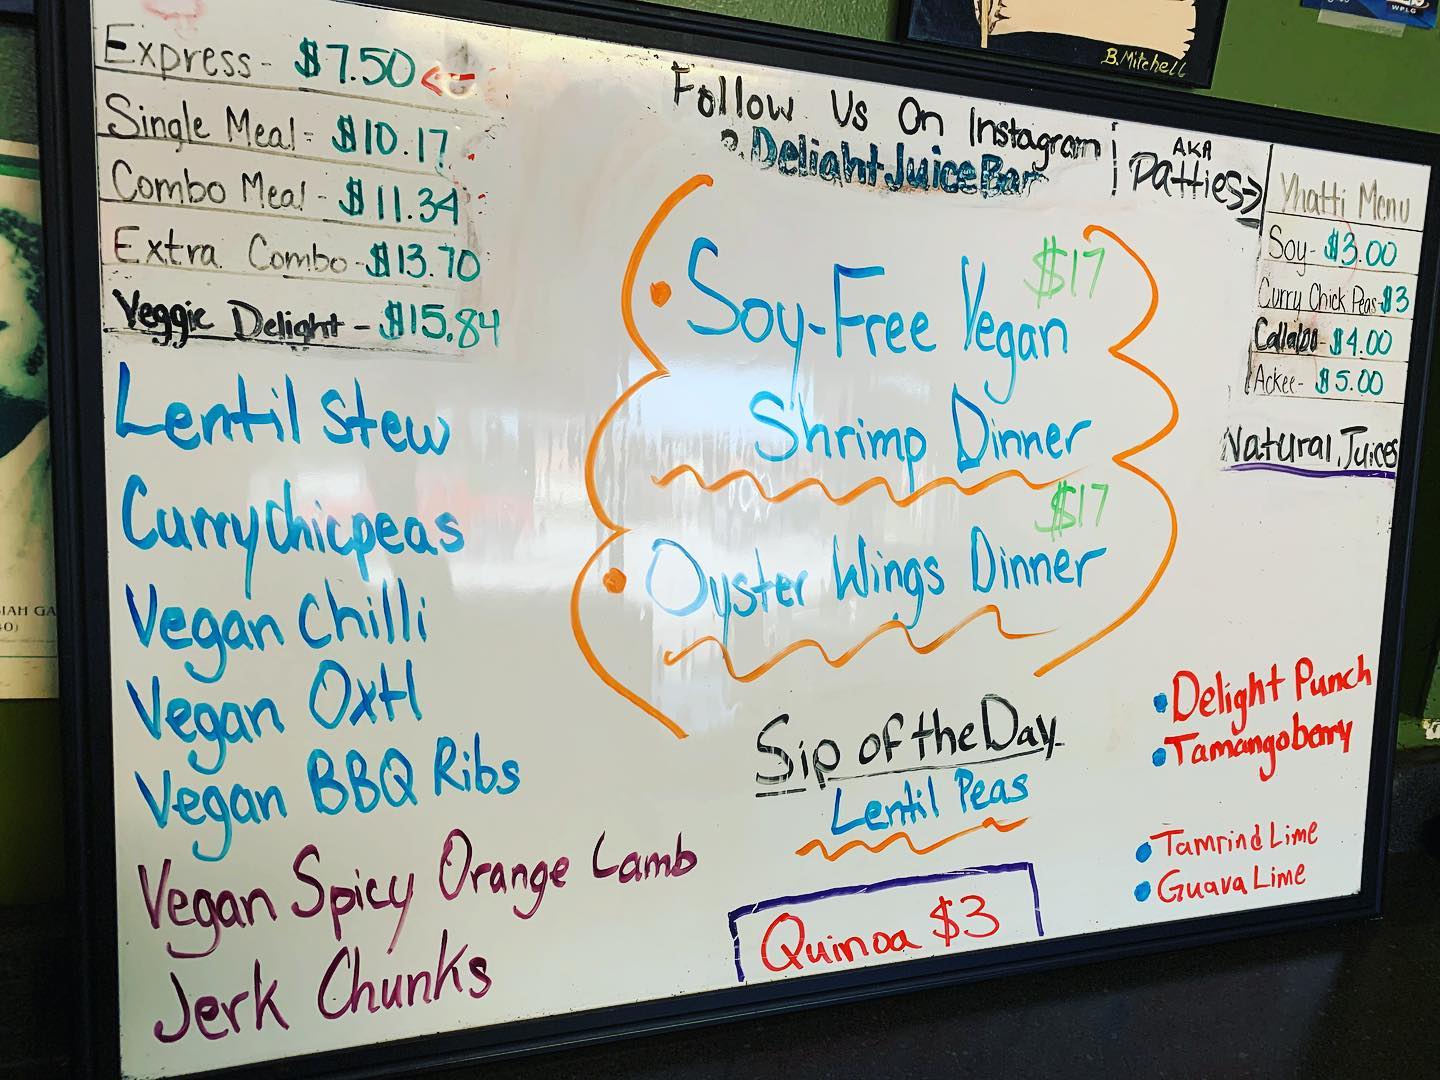 Express - $7.50
Single Meal - $10.17
Combo Meal - $11.34
Extra Combo - $13.70
Veggie Delight - $15.84
Lentil Stew
Curry chicpeas
Vegan Chilli
Vegan Oxtl
Vegan BBQ Ribs
Vegan Spicy Orange Lamb
Jerk Chunks
Follow Us On Instagram
DelightJuiceBar
$17
Soy-Free Vegan
Shrimp Dinner
$17
Oyster Wings Dinner
Sip of the Day
Lentil Peas
Quinoa $3
AKA
Patties
Yhatti Menu
Soy - $3.00
Curry Chick Peas - $3
$4.00
Ackee - $5.00
Natural Juices
Delight Punch
Tamangoberry
Tamrind Lime
Guava Lime
B. Mitchell
WPLG
SIAH GA